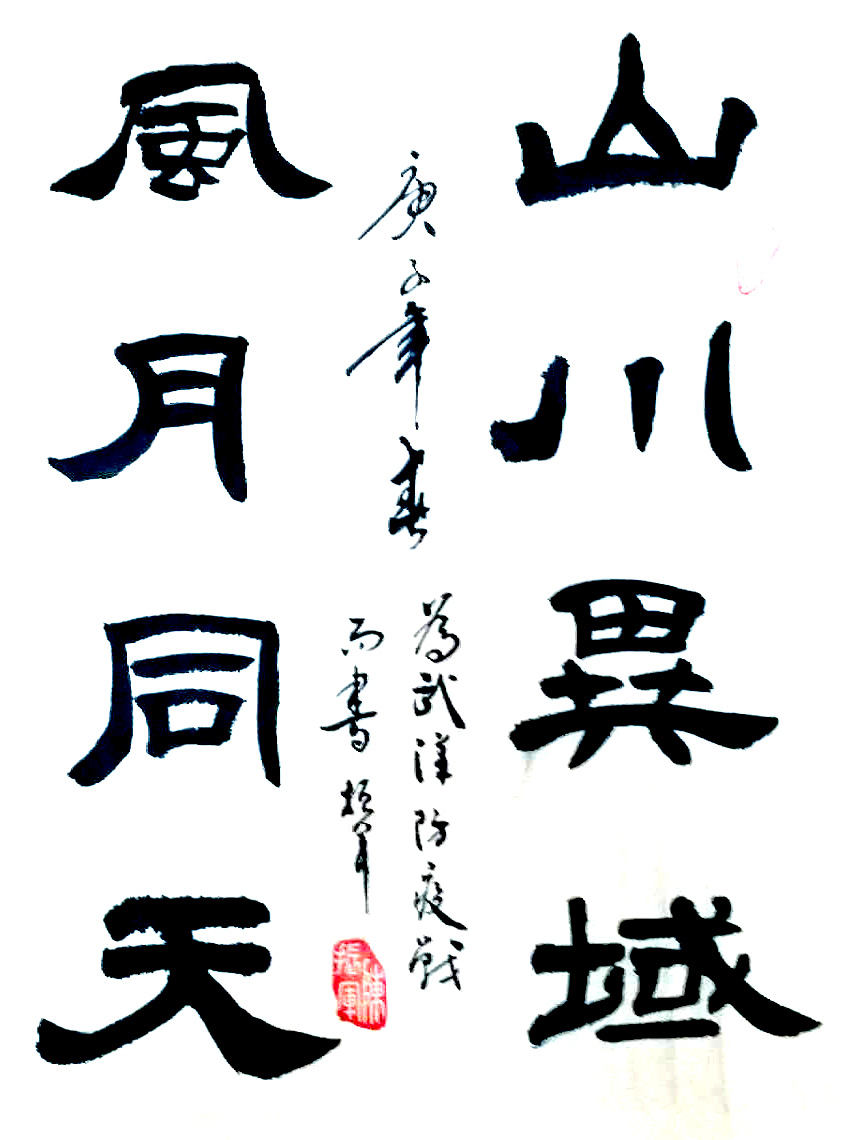 山川異域
風月同天
庚子年春
為武漢防疫戰
而書 振軍
陳振軍